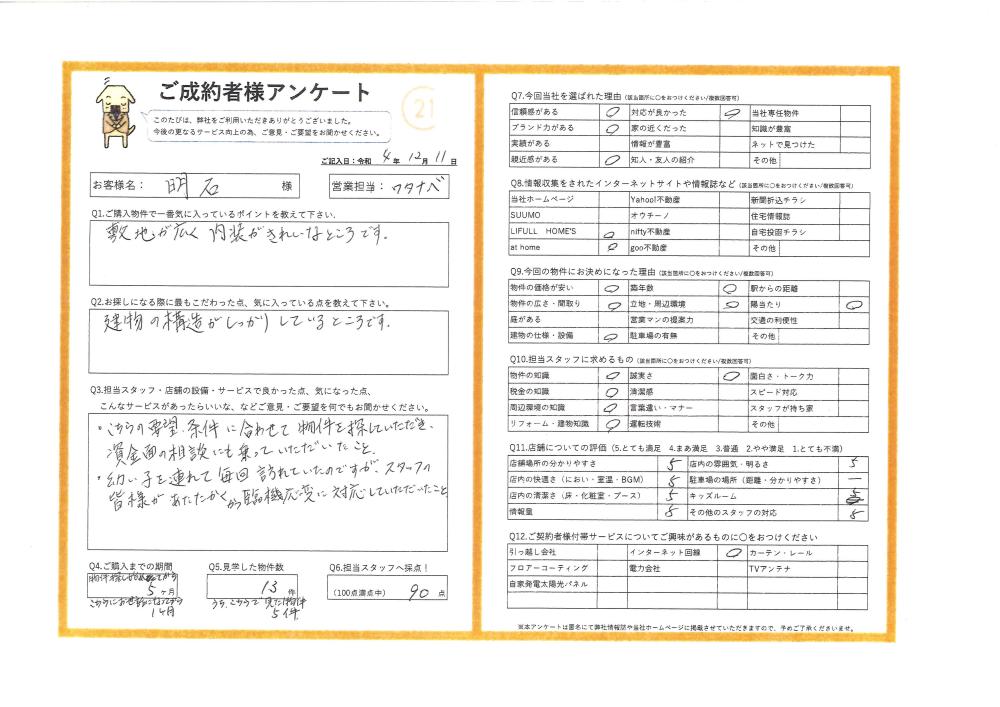 ご成約者様アンケート
21
このたびは、弊社をご利用いただきありがとうございました。
今後の更なるサービス向上の為、ご意見・ご要望をお聞かせください。
ご記入日：令和 4年 12月 11日
お客様名： 明石 様
営業担当： ワタナベ
Q1.ご購入物件で一番気に入っているポイントを教えて下さい。
敷地が広く 内装がきれいなところです。
Q2.お探しになる際に最もこだわった点、気に入っている点を教えて下さい。
建物の構造がしっかりしているところです。
Q3.担当スタッフ・店舗の設備・サービスで良かった点、気になった点、
こんなサービスがあったらいいな、などご意見・ご要望を何でもお聞かせください。
・こちらの要望、条件に合わせて物件を探していただき、
資金面の相談にも乗っていただいたこと。
・幼い子を連れて毎回訪れていたのですが、スタッフの
皆様があたたかく かつ臨機応変に対応していただいたこと
Q4.ご購入までの期間
5ヶ月
1ヶ月
Q5.見学した物件数
13件
うち、こちらで見た物件
5件
Q6.担当スタッフへ採点！
（100点満点中） 90 点
Q7.今回当社を選ばれた理由（該当箇所に○をおつけください/複数回答可）
信頼感がある ○ 対応が良かった ○ 当社専任物件
ブランド力がある ○ 家の近くだった 知識が豊富
実績がある 情報が豊富 ネットで見つけた
親近感がある ○ 知人・友人の紹介 その他
Q8.情報収集をされたインターネットサイトや情報誌など（該当箇所に○をおつけください/複数回答可）
当社ホームページ Yahoo!不動産 新聞折込チラシ
SUUMO オウチーノ 住宅情報誌
LIFULL HOME'S ○ nifty不動産 自宅投函チラシ
at home ○ goo不動産 その他
Q9.今回の物件にお決めになった理由（該当箇所に○をおつけください/複数回答可）
物件の価格が安い ○ 築年数 ○ 駅からの距離
物件の広さ・間取り ○ 立地・周辺環境 ○ 陽当たり ○
庭がある 営業マンの提案力 交通の利便性
建物の仕様・設備 ○ 駐車場の有無 その他
Q10.担当スタッフに求めるもの（該当箇所に○をおつけください/複数回答可）
物件の知識 ○ 誠実さ ○ 面白さ・トーク力
税金の知識 ○ 清潔感 スピード対応
周辺環境の知識 ○ 言葉遣い・マナー スタッフが持ち家
リフォーム・建物知識 ○ 運転技術 その他
Q11.店舗についての評価（5.とても満足 4.まあ満足 3.普通 2.やや満足 1.とても不満）
店舗場所の分かりやすさ 5 店内の雰囲気・明るさ 5
店内の快適さ（におい・室温・BGM） 5 駐車場の場所（距離・分かりやすさ） ー
店内の清潔さ（床・化粧室・ブース） 5 キッズルーム 5
情報量 5 その他のスタッフの対応 5
Q12.ご契約者様付帯サービスについてご興味があるものに○をおつけください
引っ越し会社 インターネット回線 ○ カーテン・レール
フロアーコーティング 電力会社 TVアンテナ
自家発電太陽光パネル
※本アンケートは匿名にて弊社情報誌や当社ホームページに掲載させていただきますので、予めご了承くださいませ。